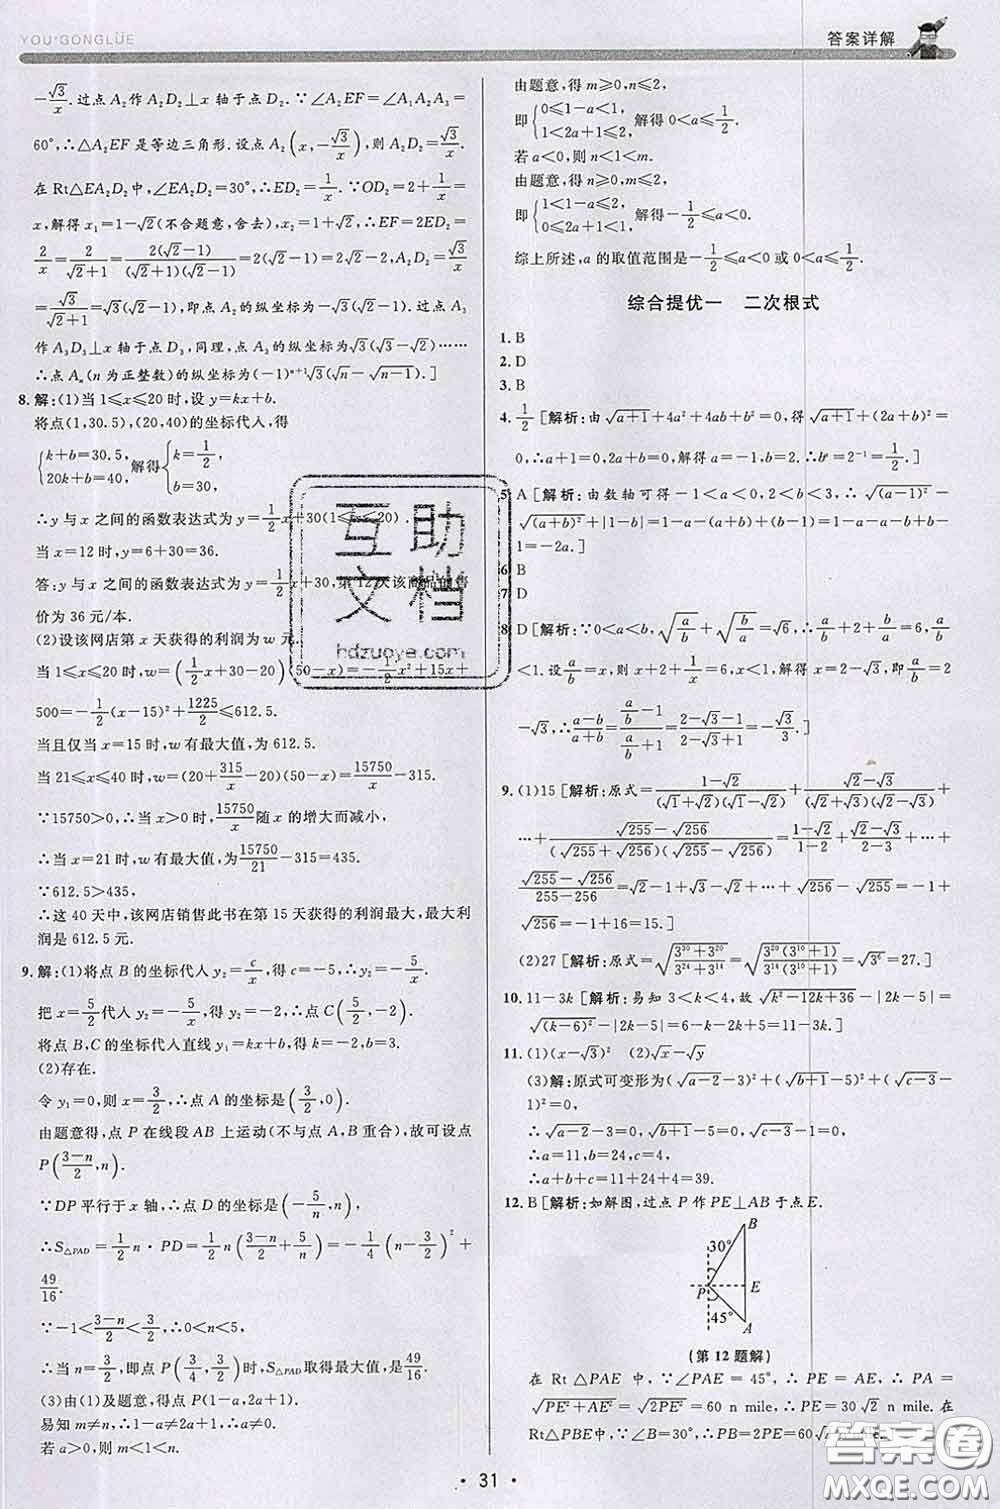 YOU*GONGLÜE
答案详解
-√3/x.过点A₂作A₂D₂⊥x轴于点D₂.∵∠A₂EF=∠A₁A₂A₃=
60°,∴△A₂EF是等边三角形.设点A₂(x,-√3/x),则A₂D₂=√3/x.
在Rt△EA₂D₂中,∠EA₂D₂=30°,∴ED₂=1/x.∵OD₂=2+1/x=
x,解得x₁=1-√2(不合题意,舍去),x₂=1+√2,∴EF=2ED₂=
2/x=2/(√2+1)=2(√2-1)/((√2+1)(√2-1))=2(√2-1)=2√2-2,A₂D₂=√3/x=
√3/(√2+1)=√3(√2-1),即点A₂的纵坐标为-√3(√2-1).过点A₃
作A₃D₃⊥x轴于点D₃,同理,点A₃的纵坐标为√3(√3-√2)……
∴点Aₙ(n为正整数)的纵坐标为(-1)ⁿ⁺¹√3(√n-√(n-1)).]
8.解:(1)当1≤x≤20时,设y=kx+b.
将点(1,30.5),(20,40)的坐标代人,得
{k+b=30.5, 20k+b=40, 解得{k=1/2, b=30,
∴y与x之间的函数表达式为y=1/2x+30(1≤x≤20).
当x=12时,y=6+30=36.
答:y与x之间的函数表达式为y=1/2x+30,第12天该商品的销售
价为36元/本.
(2)设该网店第x天获得的利润为w元.
当1≤x≤20时,w=(1/2x+30-20)(50-x)=-1/2x²+15x+
500=-1/2(x-15)²+1225/2≤612.5.
当且仅当x=15时,w有最大值,为612.5.
当21≤x≤40时,w=(20+315/x-20)(50-x)=15750/x-315.
∵15750>0,∴当x>0时,15750/x随x的增大而减小,
∴当x=21时,w有最大值,为15750/21-315=435.
∵612.5>435,
∴这40天中,该网店销售此书在第15天获得的利润最大,最大利
润是612.5元.
9.解:(1)将点B的坐标代人y₂=c/x,得c=-5,∴y₂=-5/x.
把x=5/2代人y₂=-5/x,得y=-2,∴点C(5/2,-2).
将点B,C的坐标代人直线y₁=kx+b,得k=-2,b=3.
(2)存在.
令y₁=0,则x=3/2,∴点A的坐标是(3/2,0).
由题意得,点P在线段AB上运动(不与点A,B重合),故可设点
P((3-n)/2,n).
∵DP平行于x轴,∴点D的坐标是(-5/n,n),
∴S△PAD=1/2n·PD=1/2n((3-n)/2+5/n)=-1/4(n-3/2)²+
49/16.
∵-1<(3-n)/2<3/2,∴0<n<5,
∴当n=3/2,即点P(3/4,3/2)时,S△PAD取得最大值,是49/16.
(3)由(1)及题意,得点P(1-a,2a+1).
易知m≠n,∴1-a≠2a+1,∴a≠0.
若a>0,则m<1<n.
由题意,得m≥0,n≤2,
即{0≤1-a<1, 1<2a+1≤2, 解得0<a≤1/2.
若a<0,则n<1<m.
由题意,得n≥0,m≤2,
即{1<1-a≤2, 0≤2a+1<1, 解得-1/2≤a<0.
综上所述,a的取值范围是-1/2≤a<0或0<a≤1/2.
综合提优一 二次根式
1.B
2.D
3.B
4.1/2 [解析:由√(a+1)+4a²+4ab+b²=0,得√(a+1)+(2a+b)²=
0,∴a+1=0,2a+b=0,∴a=-1,b=2,∴bᵃ=2⁻¹=1/2.]
5.A [解析:由数轴可得-1<a<0,1<b<2,∴√((a-1)²)-
√((a+b)²)+|1-b|=1-a-(a+b)-(1-b)=1-a-a-b-
1+b=-2a.]
6.B
7.D
8.D [解析:∵0<a<b,√(a/b)+√(b/a)=√6,∴a/b+2+b/a=6,a/b
<1.设a/b=x,则x+1/x=4,x²-4x+1=0,x=2-√3,即a/b=2
-√3,∴(a-b)/(a+b)=(a/b-1)/(a/b+1)=(2-√3-1)/(2-√3+1)=-√3/3.]
9.(1)15 [解析:原式=(1-√2)/((√1+√2)(√1-√2))+(√2-√3)/((√2+√3)(√2-√3))+
…+(√255-√256)/((√255+√256)(√255-√256))=(1-√2)/(1-2)+(√2-√3)/(2-3)+…+
(√255-√256)/(255-256)=√2-1+√3-√2+…+√256-√255=√256-1=
16-1=15.]
(2)27 [解析:原式=√((3³⁰+3²⁰)/(3²⁴+3¹⁴))=√(3²⁰(3¹⁰+1)/(3¹⁴(3¹⁰+1)))=√3⁶=27.]
10.11-3k [解析:易知3<k<4,故√(k²-12k+36)-|2k-5|=
√((k-6)²)-|2k-5|=6-k-(2k-5)=11-3k.]
11.(1)(x-√3)² (2)√x-√y
(3)解:原式可变形为(√(a-2)-3)²+(√(b+1)-5)²+(√(c-3)-
1)²=0,
∴√(a-2)=3,√(b+1)=5,√(c-3)=1,
∴a=11,b=24,c=4,
∴a+b+c=11+24+4=39.
12.B [解析:如解图,过点P作PE⊥AB于点E.
B
30°
P
E
45°
A
(第12题解)
在Rt△PAE中,∵∠PAE=45°,∴PE=AE,∴PA=
√(PE²+AE²)=√(2PE²)=60 n mile,∴PE=30√2 n mile.在
Rt△PBE中,∵∠B=30°,∴PB=2PE=60√2
• 31 •
互助
文档
hdzuoye.com
答案圈
MXQE.COM